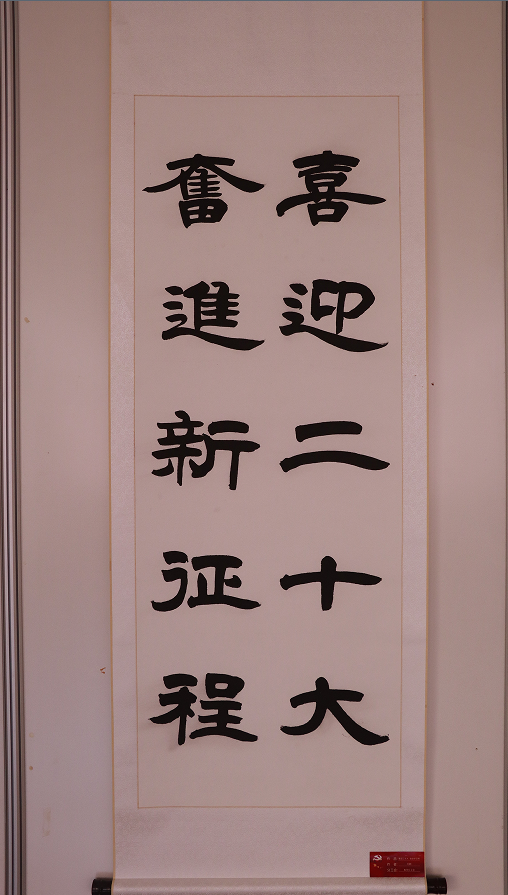 喜迎二十大
奮進新征程